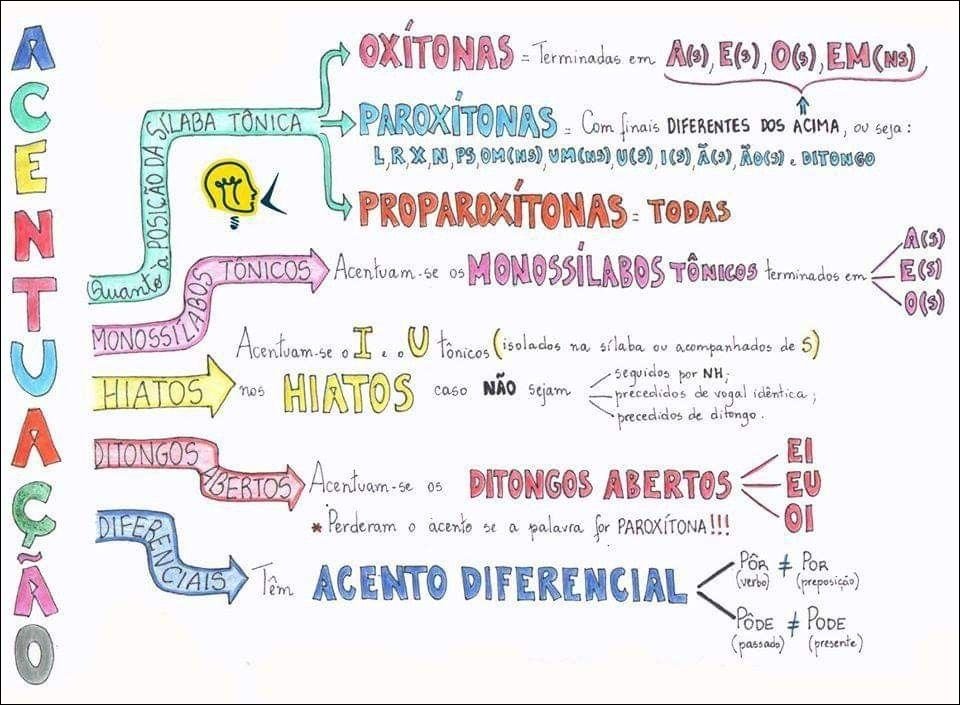 ACENTUAÇÃO
Quanto à POSIÇÃO DA SÍLABA TÔNICA
OXÍTONAS = Terminadas em A(S), E(S), O(S), EM(NS)
PAROXÍTONAS = Com finais DIFERENTES DOS ACIMA, ou seja:
L, R, X, N, PS, OM(NS), UM(NS), U(S), I(S), Ã(S), ÃO(S) e DITONGO
PROPAROXÍTONAS = TODAS
MONOSSÍLABOS TÔNICOS
Acentuam-se os MONOSSÍLABOS TÔNICOS terminados em
A(S)
E(S)
O(S)
HIATOS
Acentuam-se o I e o U tônicos (isolados na sílaba ou acompanhados de S)
nos HIATOS caso NÃO sejam
seguidos por NH;
precedidos de vogal idêntica;
precedidos de ditongo.
DITONGOS ABERTOS
Acentuam-se os DITONGOS ABERTOS
EI
EU
OI
* Perderam o acento se a palavra for PAROXÍTONA!!!
DIFERENCIAIS
Têm ACENTO DIFERENCIAL
PÔR ≠ POR
(verbo) (preposição)
PÔDE ≠ PODE
(passado) (presente)